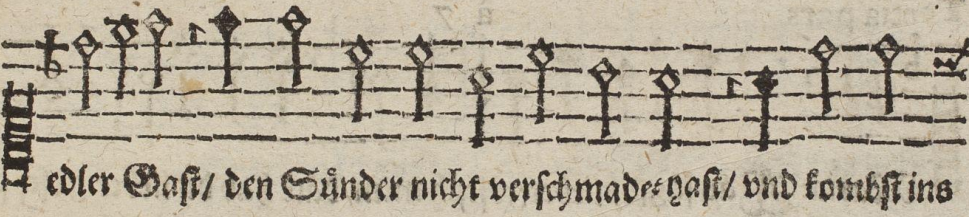 edler Gast/ den Sünder nicht verschmadet hast/ vnd kombst ins